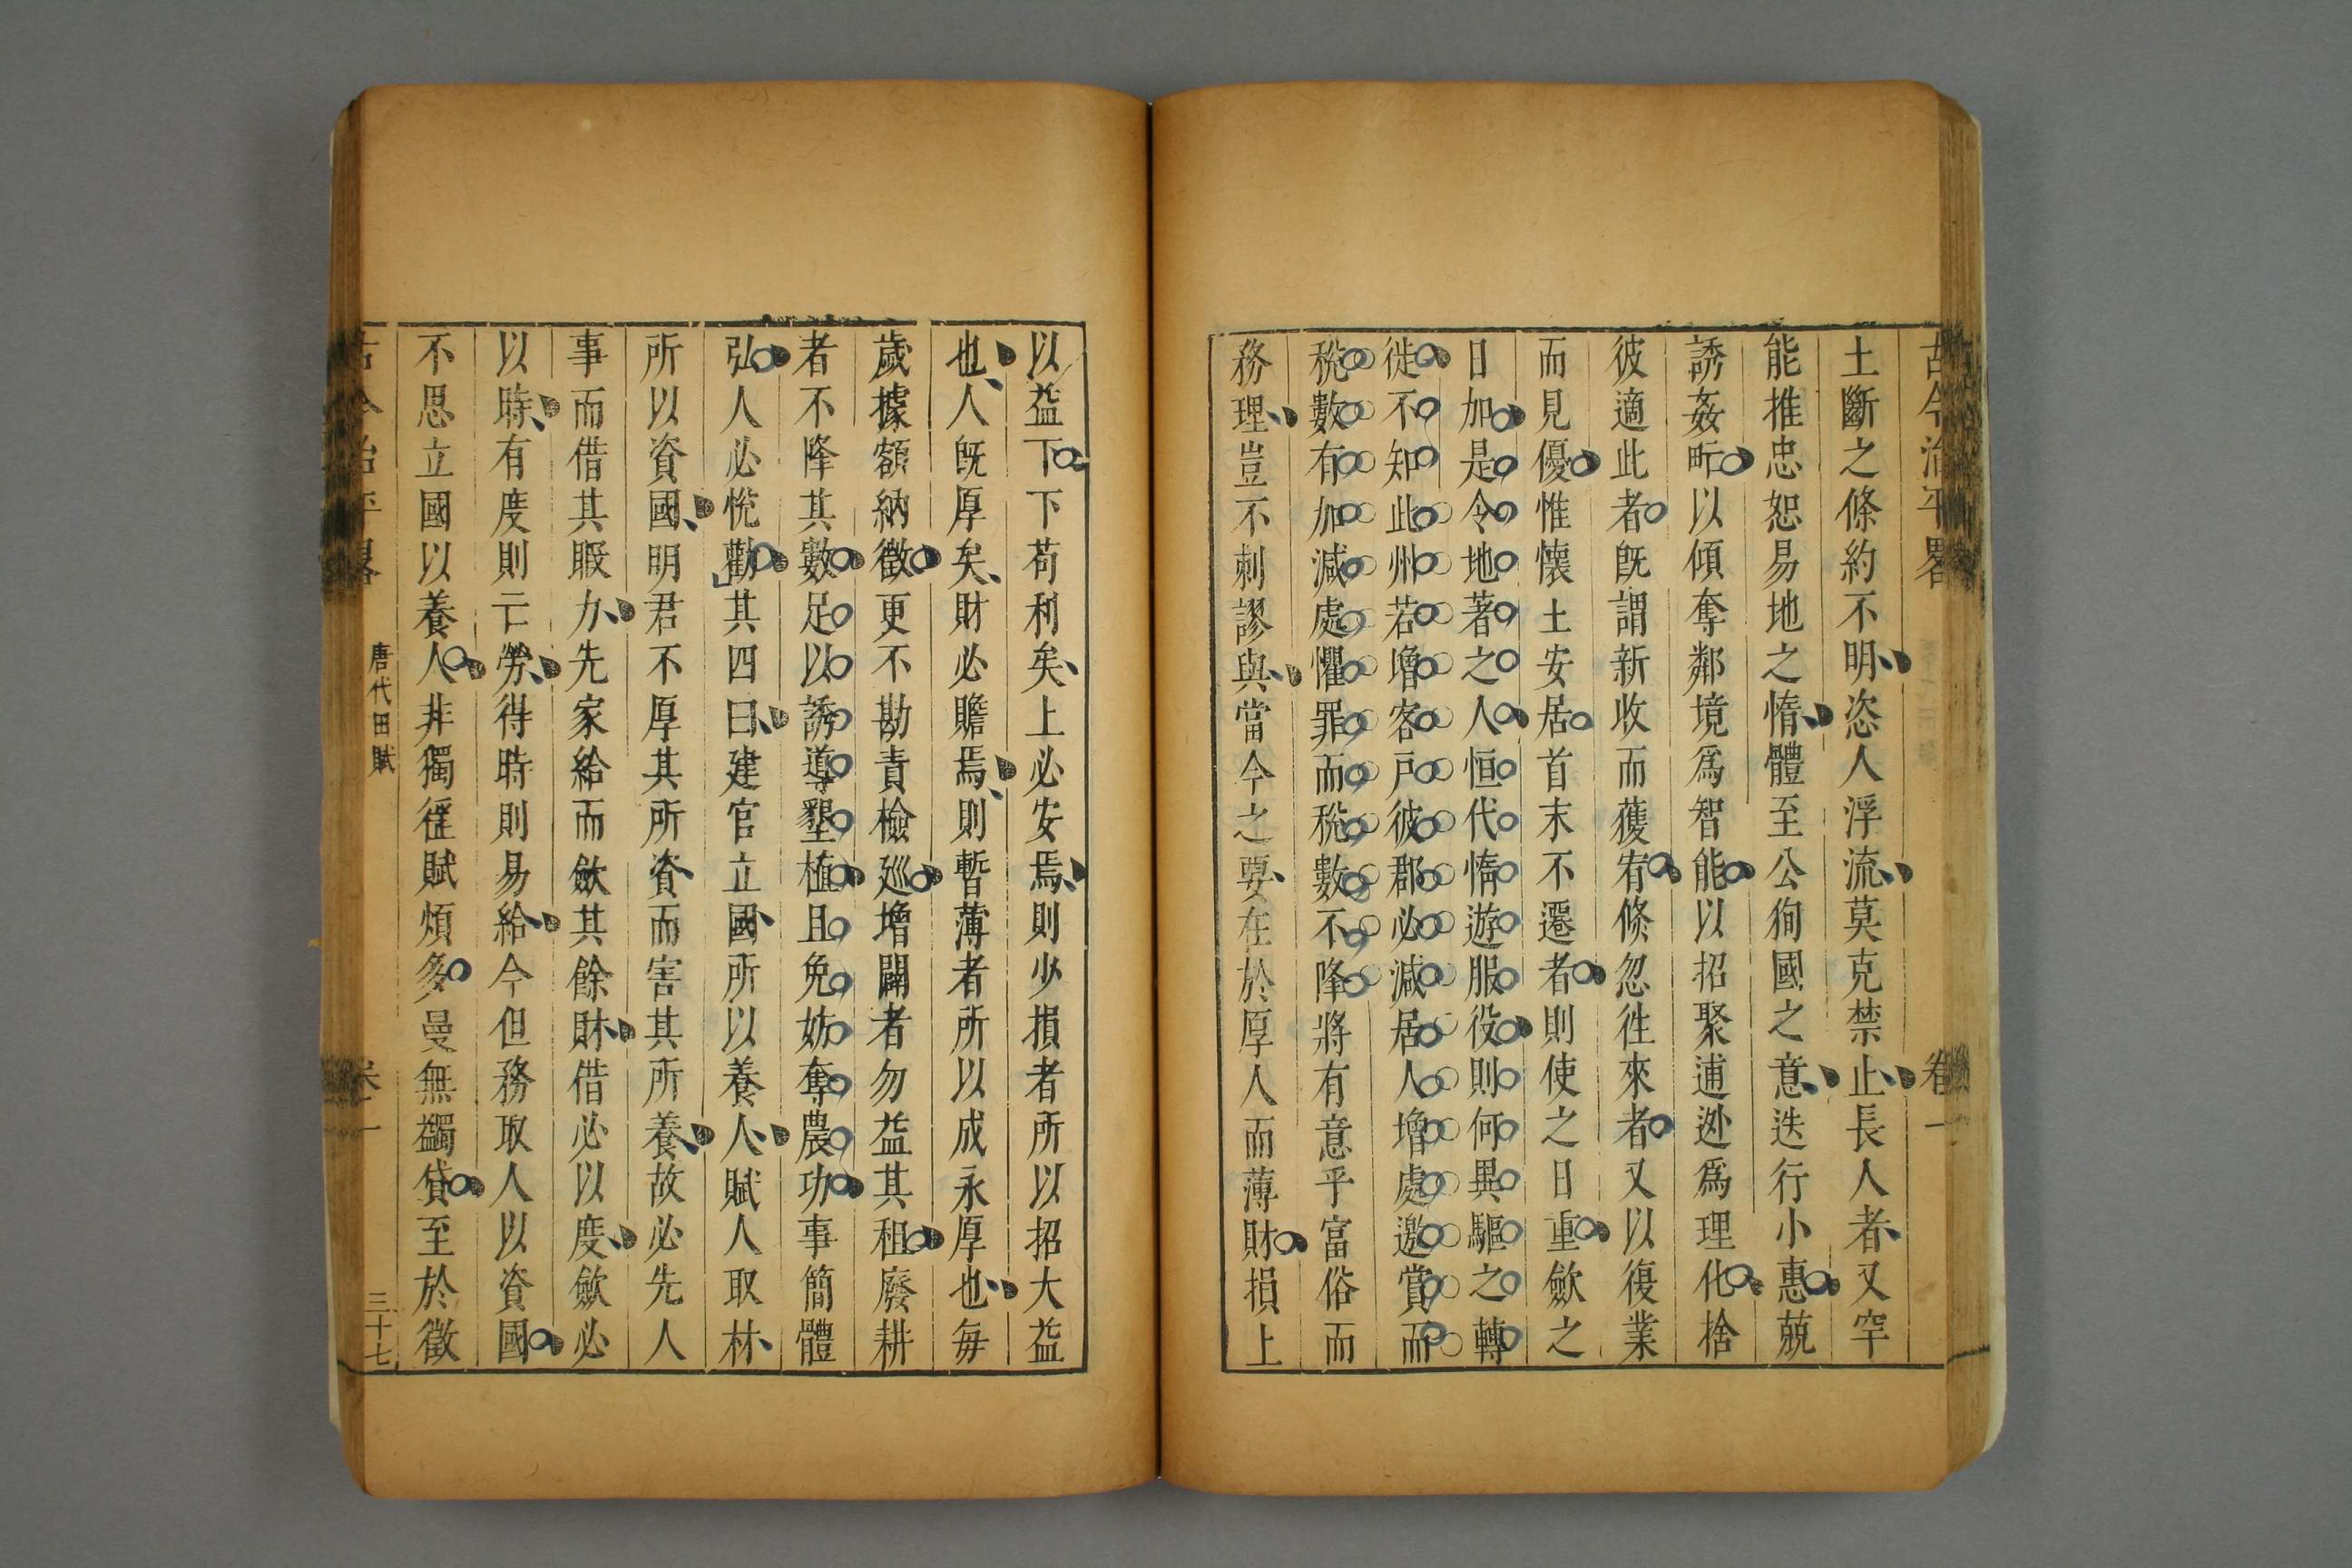 古今治平畧
卷一
土斷之條約不明恣人浮流莫克禁止長人者又罕
能推忠恕易地之情體至公徇國之意迭行小惠競
誘姦甿以傾奪鄰境爲智能以招聚逋逃爲理化捨
彼適此者既謂新收而獲宥倏忽徃來者又以復業
而見優惟懷土安居首末不遷者則使之日重斂之
日加是令地著之人恒代惰遊服役則何異驅之轉
徙不知此州若增客戸彼郡必減居人增處邀賞而
稅數有加減處懼罪而稅數不降將有意乎富俗而
務理豈不刺謬與當今之要在於厚人而薄財損上
以益下下苟利矣上必安焉則少損者所以招大益
也人既厚矣財必贍焉則暫薄者所以成永厚也每
歲據額納徵更不勘責檢廵增闢者勿益其租廢耕
者不降其數足以誘導墾植且免妨奪農功事簡體
弘人必悅勸其四曰建官立國所以養人賦人取材
所以資國明君不厚其所資而害其所養故必先人
事而借其暇力先家給而斂其餘財借必以度斂必
以時有度則亡勞得時則易給今但務取人以資國
不思立國以養人非獨徭賦煩多曼無蠲貸至於徵
古今治平畧
唐代田賦
卷一
三十七